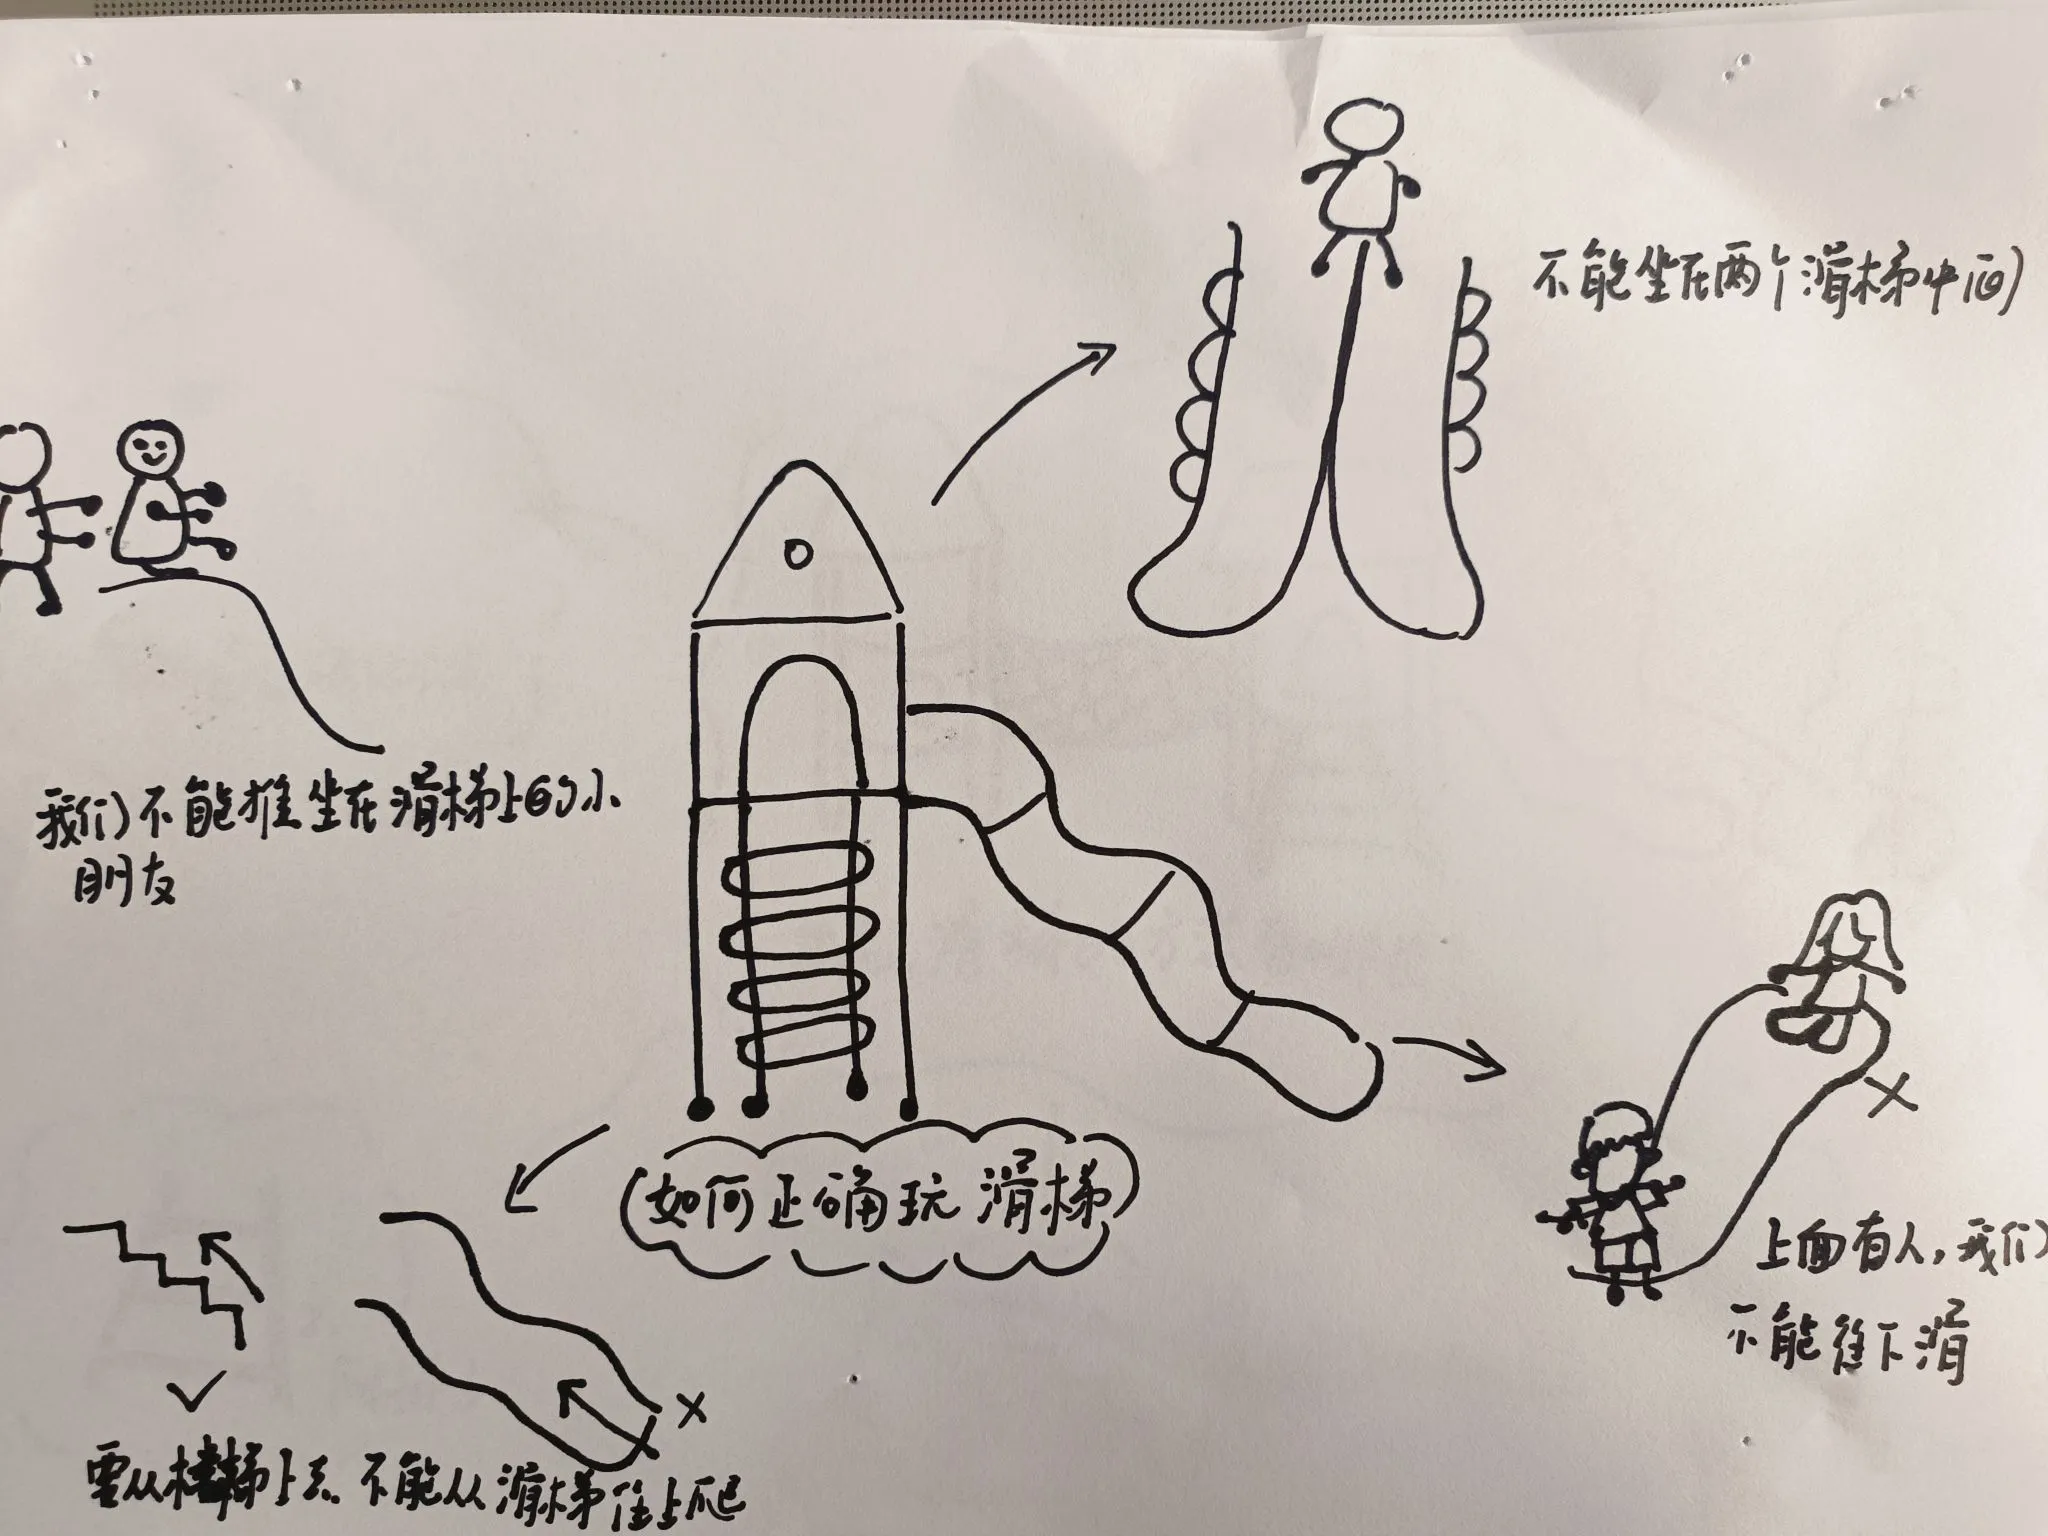 不能坐在两个滑梯中间
我们不能推坐在滑梯上的小
朋友
如何正确玩滑梯
上面有人,我们
不能往下滑
需从楼梯上去 不能从滑梯往上爬